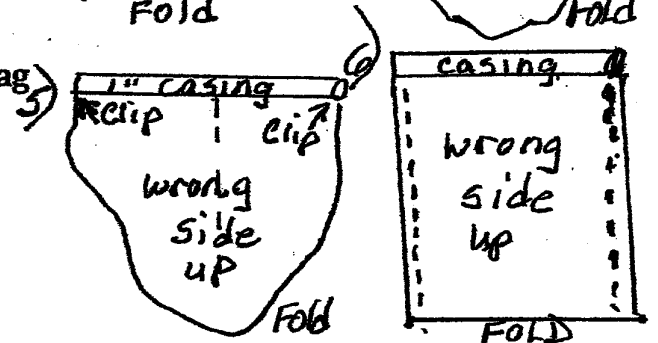 Fold
Fold
ag
5)
6
1" casing
clip
clip
wrong
side
up
Fold
casing
wrong
side
up
FOLD